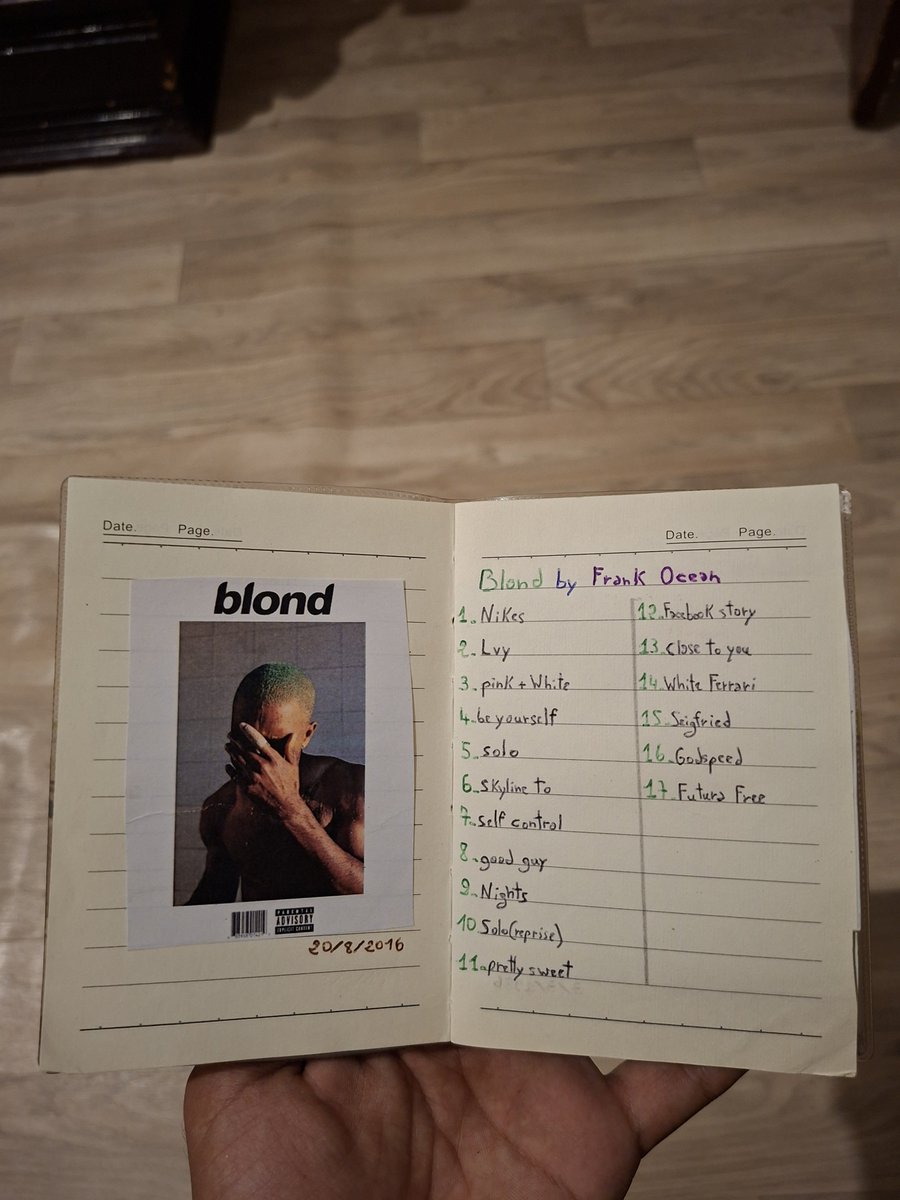 Date. Page.
blond
PARENTAL
ADVISORY
EXPLICIT CONTENT
20/8/2016
Date. Page.
Blond by Frank Ocean
1. Nikes
2. Lvy
3. pink + White
4. be yourself
5. solo
6. Skyline to
7. self control
8. good guy
9. Nights
10 Solo(reprise)
11. pretty sweet
12. Facebook story
13. Close to you
14. White Ferrari
15. Seigfried
16. Godspeed
17. Futura Free